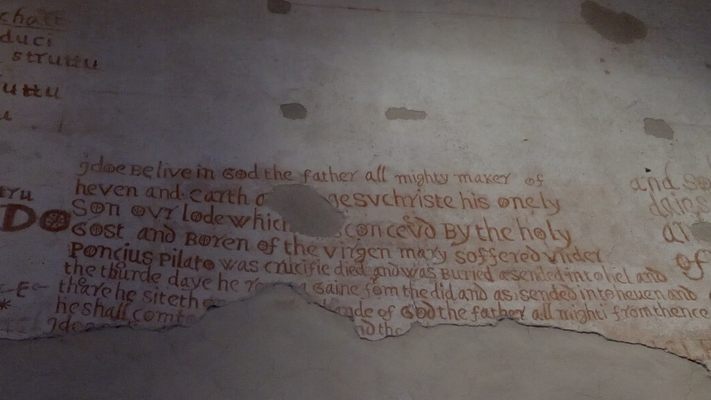 chatt
duci
struttu
uttu
u
jdoe Belive in God the father all mighty maker of
heven and Earth a gesvchriste his onely
Son ovr lode which concevd By the holy
Gost and Boren of the virgen mary soffered vnder
Poncius Pilato was crucifie died and was Buried asended into hel and
the thurde daye he ro a Gaine fom the did and asisended into heven and
thare he siteth de of God the father all mighti from thence
he shall com to nd the
jdoe
tru
DO
and so
daies
of